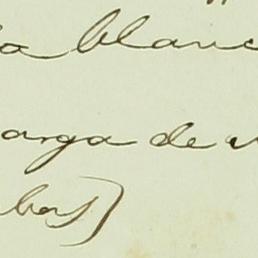 a blanc
arga de
bos)